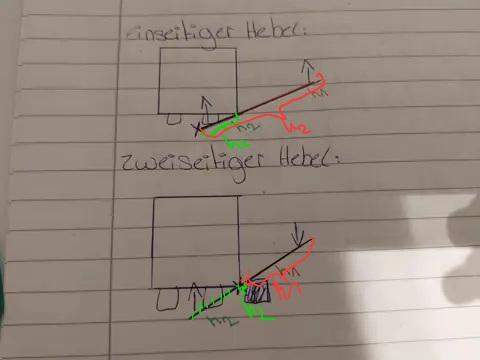 einseitiger Hebel:
h1
h2
h2
zweiseitiger Hebel:
h1
h1
h2
h2